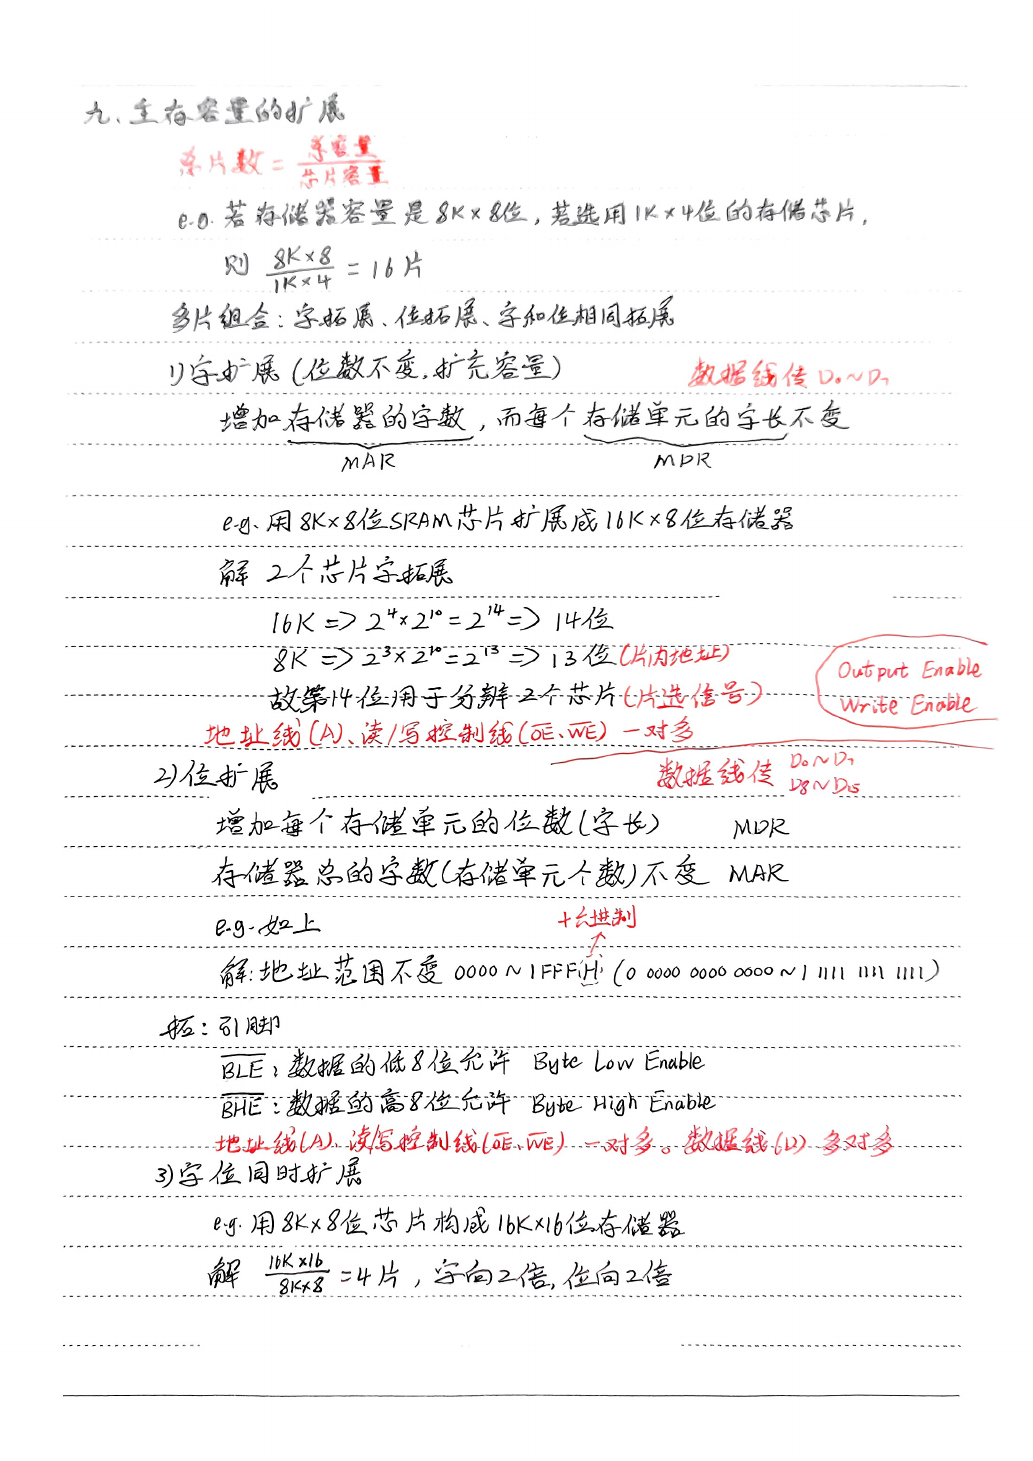 九、主存容量的扩展
总片数 = 总容量/芯片容量
e.g. 若存储器容量是 8K×8位, 若选用1K×4位的存储芯片,
则 8K×8/1K×4 = 16片
多片组合: 字拓展、位拓展、字和位相同拓展
1)字扩展 (位数不变,扩充容量)
数据线传 D₀~D₇
增加存储器的字数, 而每个存储单元的字长不变
MAR MDR
e.g. 用8K×8位SRAM芯片扩展成16K×8位存储器
解 2个芯片字拓展
16K => 2⁴×2¹⁰=2¹⁴=> 14位
8K => 2³×2¹⁰=2¹³ => 13位 (片内地址)
故第14位用于分辨2个芯片 (片选信号)
Output Enable
Write Enable
地址线(A)、读/写控制线(O̅E̅、W̅E̅) 一对多
2)位扩展
数据线传 D₀~D₇
D₈~D₁₅
增加每个存储单元的位数(字长) MDR
存储器总的字数(存储单元个数)不变 MAR
e.g. 如上
十六进制
解: 地址范围不变 0000 ~ 1FFF(H) (0 0000 0000 0000 ~ 1 1111 1111 1111)
拓: 引脚
B̅L̅E̅: 数据的低8位允许 Byte Low Enable
B̅H̅E̅: 数据的高8位允许 Byte High Enable
地址线(A)、读写控制线(O̅E̅、W̅E̅) 一对多。数据线(D) 多对多
3)字位同时扩展
e.g. 用8K×8位芯片构成16K×16位存储器
解 16K×16/8K×8 = 4片, 字向2倍, 位向2倍